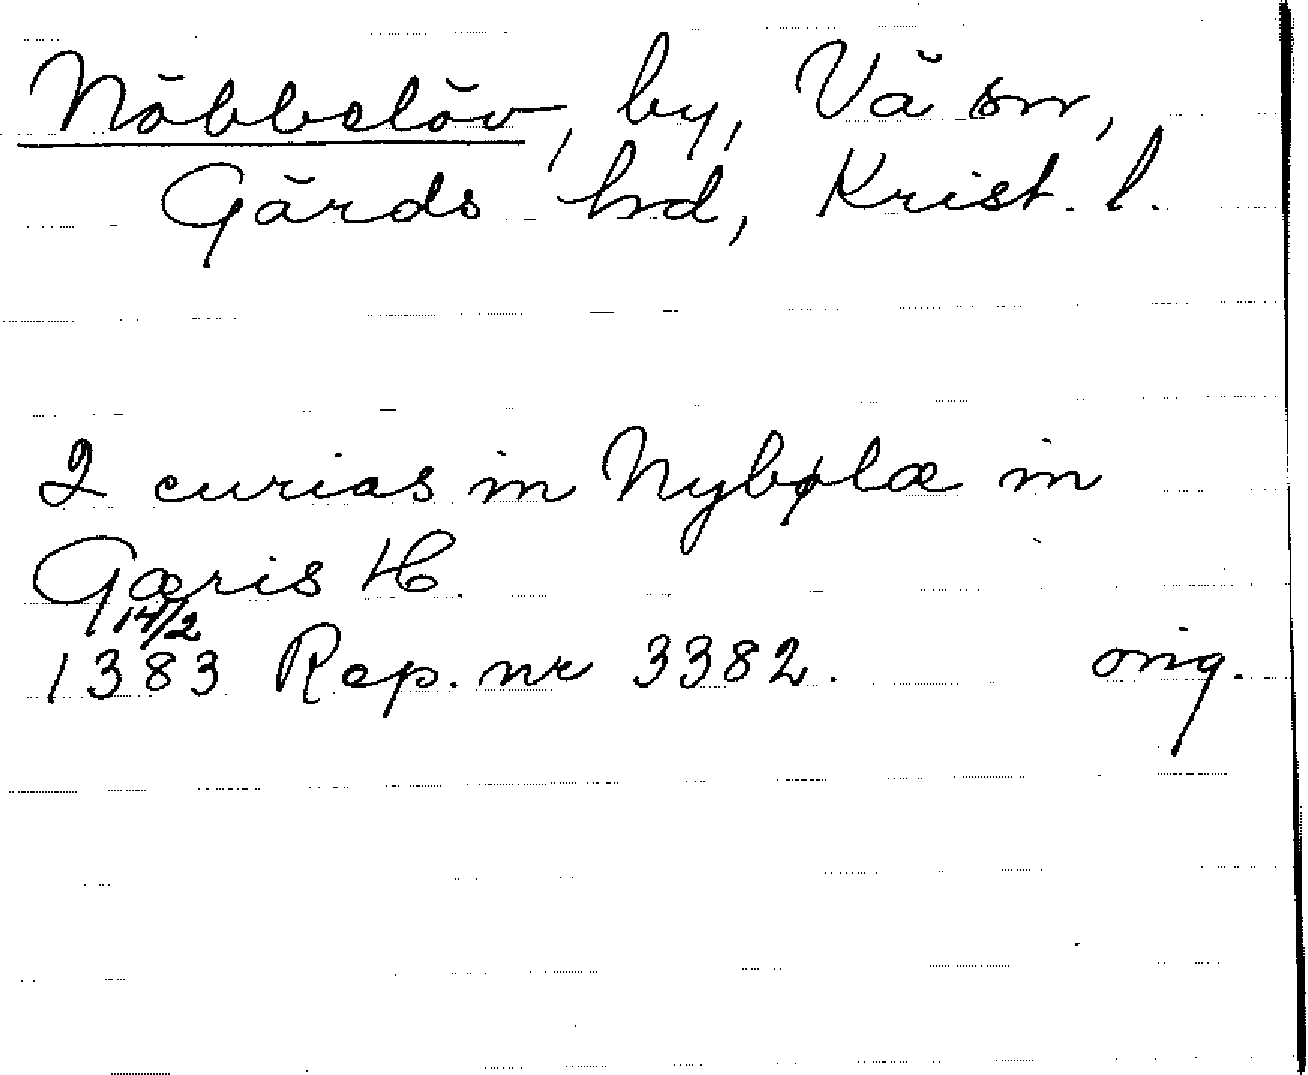 Nöbbelöv, by, Vä sn,
Gärds hd, Krist. l.
2 curias in Nybølæ in
Gæris H.
14/2
1383 Rep. nr 3382. orig.